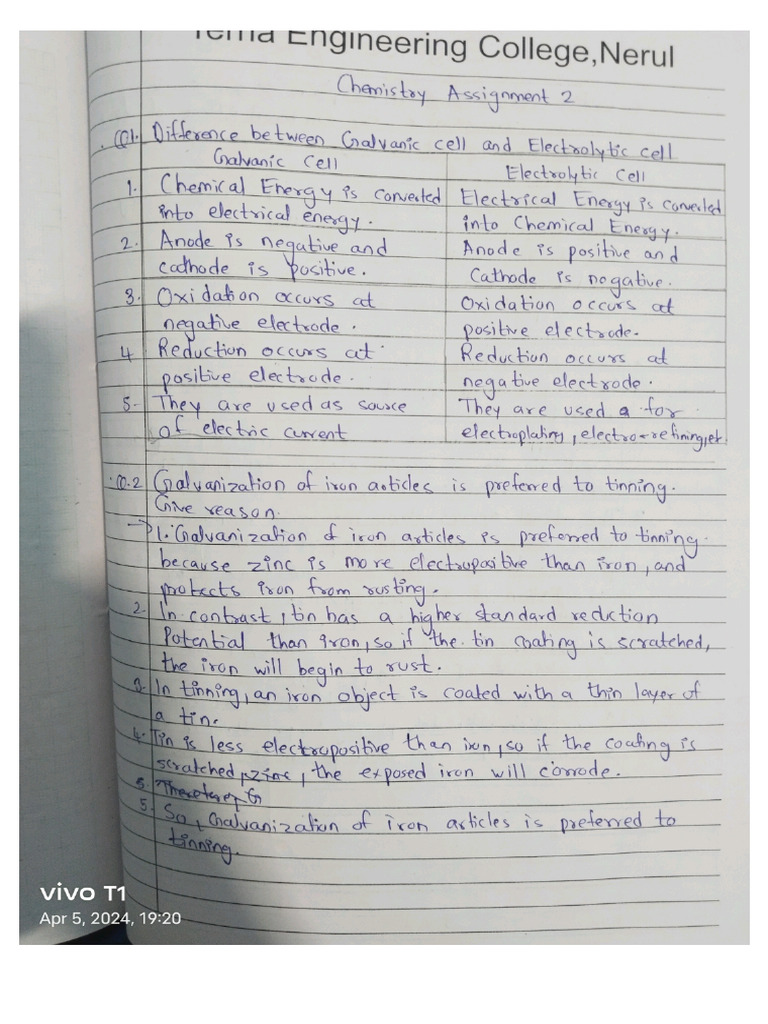 Terna Engineering College,Nerul
Chemistry Assignment 2
Q1. Difference between Galvanic cell and Electrolytic cell
Galvanic Cell | Electrolytic Cell
1. Chemical Energy is converted | Electrical Energy is converted
into electrical energy. | into Chemical Energy.
2. Anode is negative and | Anode is positive and
cathode is positive. | Cathode is negative.
3. Oxidation occurs at | Oxidation occurs at
negative electrode. | positive electrode.
4 Reduction occurs at | Reduction occurs at
positive electrode. | negative electrode.
5. They are used as source | They are used a for
of electric current | electroplating, electro-refining,etc
Q.2 Galvanization of iron articles is preferred to tinning.
Give reason.
→ 1. Galvanization of iron articles is preferred to tinning
because zinc is more electropositive than iron, and
protects iron from rusting.
2. In contrast, tin has a higher standard reduction
Potential than iron, so if the tin coating is scratched,
the iron will begin to rust.
3. In tinning, an iron object is coated with a thin layer of
a tin.
4. Tin is less electropositive than iron, so if the coating is
scratched, zinc, the exposed iron will corrode.
5. Therefore, G
5. So, Galvanization of iron articles is preferred to
tinning.
vivo T1
Apr 5, 2024, 19:20